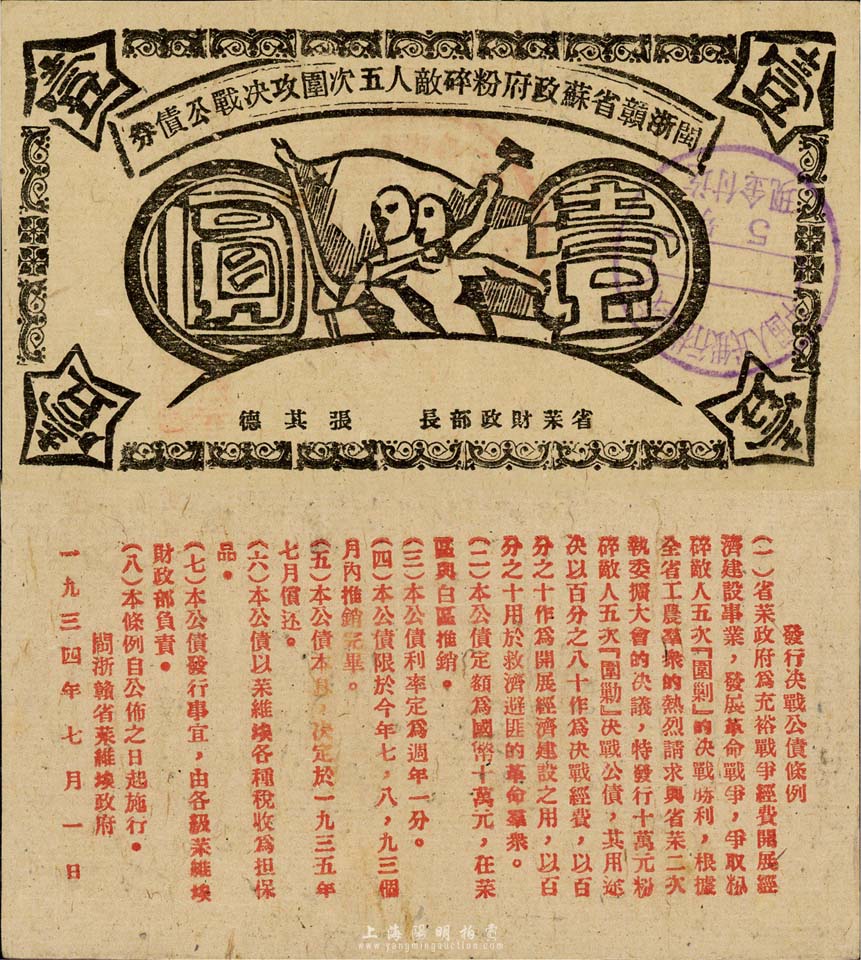 閩浙贛省蘇政府粉碎敵人五次圍攻決戰公債券
壹
壹
壹圓
現金付訖
5
省苿財政部長 張其德
壹
壹
發行決戰公債條例
(一)省苿政府爲充裕戰爭經費開展經
濟建設事業,發展革命戰爭,爭取粉
碎敵人五次『圍剿』的決戰勝利,根據
全省工農羣衆的熱烈請求與省苿二次
執委擴大會的決議,特發行十萬元粉
碎敵人五次『圍勦』決戰公債,其用途
決以百分之八十作爲決戰經費,以百
分之十作爲開展經濟建設之用,以百
分之十用於救濟避匪的革命羣衆。
(二)本公債定額爲國幣十萬元,在苿
區與白區推銷。
(三)本公債利率定爲週年一分。
(四)本公債限於今年七,八,九三個
月內推銷完畢。
(五)本公債本息,决定於一九三五年
七月償还。
(六)本公債以苿維埃各種稅收爲担保
品。
(七)本公債發行事宜,由各級苿維埃
財政部負責。
(八)本條例自公佈之日起施行。
閩浙贛省苿維埃政府
一九三四年七月一日
上海陽明拍賣
www.yangmingauction.com